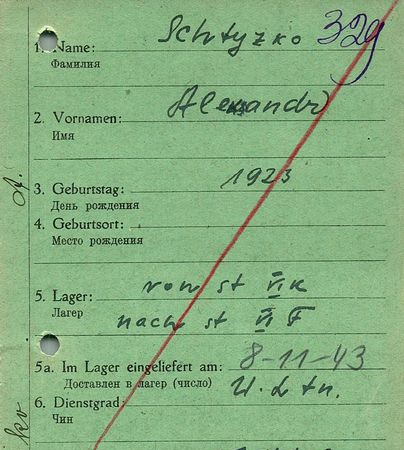 329
1. Name: Schityzko
Фамилия
2. Vornamen: Alexandr
Имя
3. Geburtstag: 1923
День рождения
4. Geburtsort:
Место рождения
5. Lager: vom st VI K
Лагер nach st VI F
5a. Im Lager eingeliefert am: 8-11-43
Доставлен в лагер (число) U. Ltn.
6. Dienstgrad:
Чин